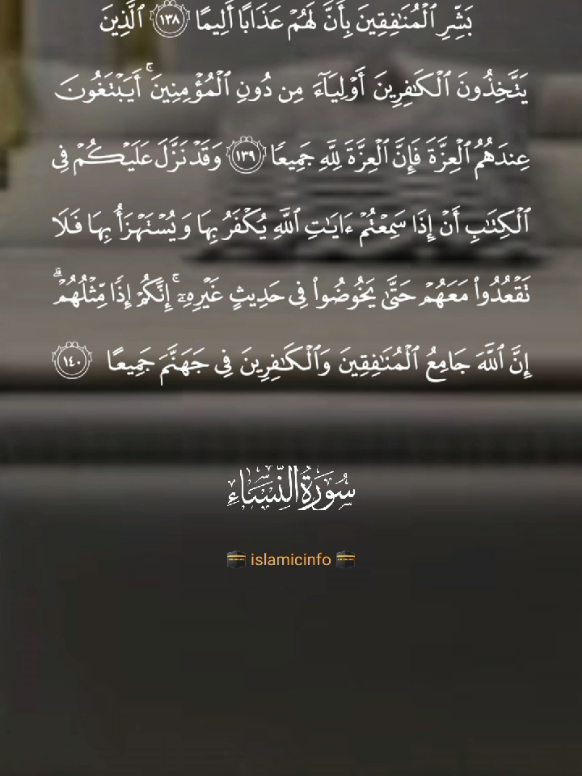 بَشِّرِ ٱلْمُنَـٰفِقِينَ بِأَنَّ لَهُمْ عَذَابًا أَلِيمًا ١٣٨ ٱلَّذِينَ
يَتَّخِذُونَ ٱلْكَـٰفِرِينَ أَوْلِيَآءَ مِن دُونِ ٱلْمُؤْمِنِينَ ۚ أَيَبْتَغُونَ
عِندَهُمُ ٱلْعِزَّةَ فَإِنَّ ٱلْعِزَّةَ لِلَّهِ جَمِيعًا ١٣٩ وَقَدْ نَزَّلَ عَلَيْكُمْ فِى
ٱلْكِتَـٰبِ أَنْ إِذَا سَمِعْتُمْ ءَايَـٰتِ ٱللَّهِ يُكْفَرُ بِهَا وَيُسْتَهْزَأُ بِهَا فَلَا
تَقْعُدُوا۟ مَعَهُمْ حَتَّىٰ يَخُوضُوا۟ فِى حَدِيثٍ غَيْرِهِۦٓ ۚ إِنَّكُمْ إِذًا مِّثْلُهُمْ ۗ
إِنَّ ٱللَّهَ جَامِعُ ٱلْمُنَـٰفِقِينَ وَٱلْكَـٰفِرِينَ فِى جَهَنَّمَ جَمِيعًا ١٤٠
سُورَةُ النِّسَاءِ
🕋 islamicinfo 🕋